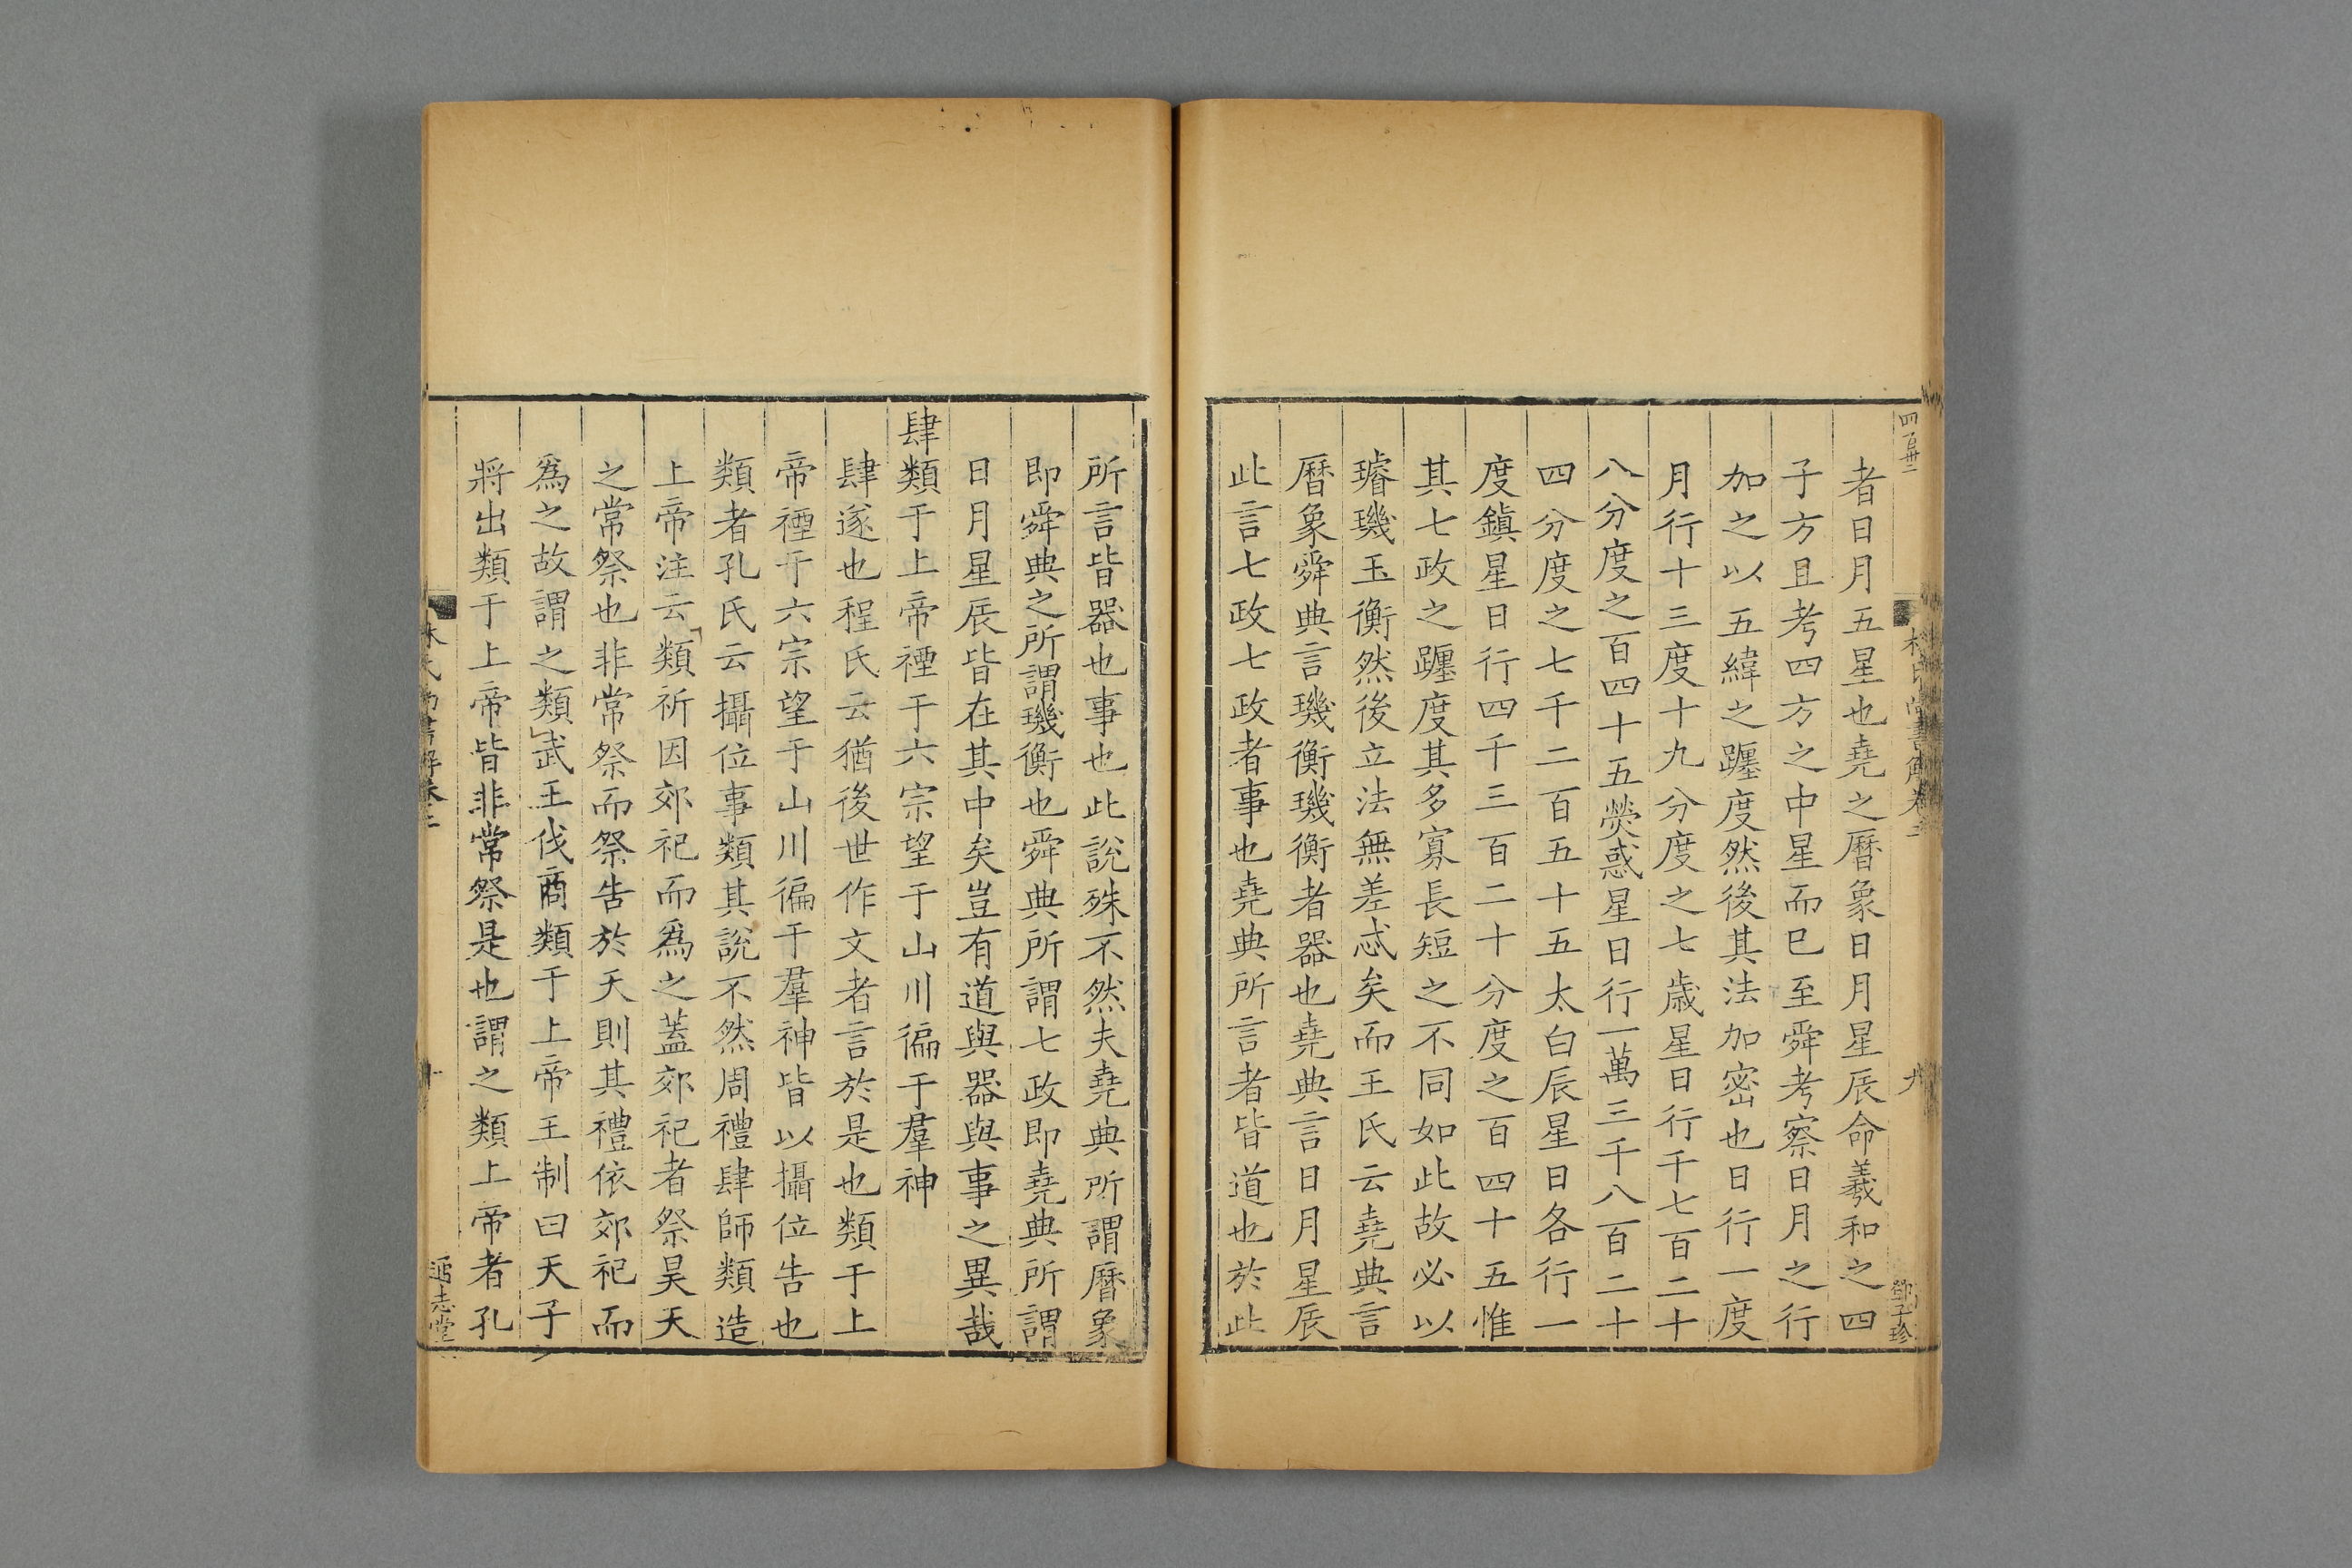 四百卅二
林氏尚書解卷二
九
鄧子珍
者日月五星也堯之曆象日月星辰命羲和之四
子方且考四方之中星而已至舜考察日月之行
加之以五緯之躔度然後其法加密也日行一度
月行十三度十九分度之七歲星日行千七百二十
八分度之百四十五熒惑星日行一萬三千八百二十
四分度之七千二百五十五太白辰星日各行一
度鎮星日行四千三百二十分度之百四十五惟
其七政之躔度其多寡長短之不同如此故必以
璿璣玉衡然後立法無差忒矣而王氏云堯典言
曆象舜典言璣衡璣衡者器也堯典言日月星辰
此言七政七政者事也堯典所言者皆道也於此
所言皆器也事也此說殊不然夫堯典所謂曆象
即舜典之所謂璣衡也舜典所謂七政即堯典所謂
日月星辰皆在其中矣豈有道與器與事之異哉
肆類于上帝禋于六宗望于山川徧于羣神
肆遂也程氏云猶後世作文者言於是也類于上
帝禋于六宗望于山川徧于羣神皆以攝位告也
類者孔氏云攝位事類其說不然周禮肆師類造
上帝注云類祈因郊祀而爲之蓋郊祀者祭昊天
之常祭也非常祭而祭告於天則其禮依郊祀而
爲之故謂之類武王伐商類于上帝王制曰天子
將出類于上帝皆非常祭是也謂之類上帝者孔
林氏尚書解卷二
十
通志堂